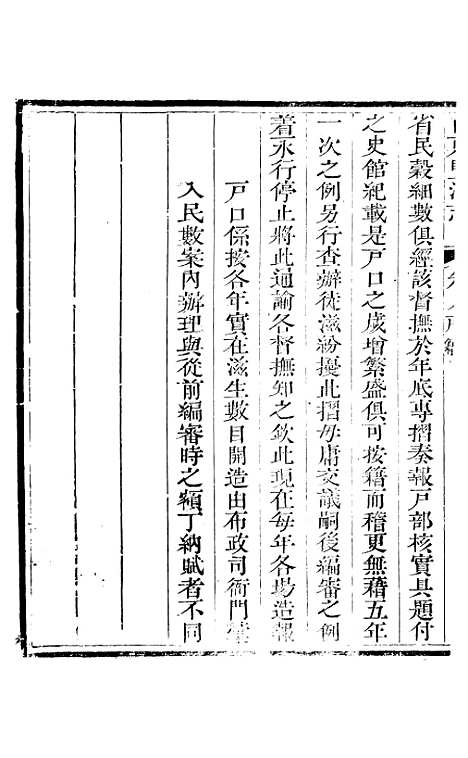 省民穀細數俱經該督撫於年底專摺奏報戸部核實具題付
之史館紀載是戸口之歲增繁盛俱可按籍而稽更無藉五年
一次之例另行查辦徒滋紛擾此摺毋庸交議嗣後編審之例
着永行停止將此通諭各督撫知之欽此現在每年各場造報
戸口係按各年實在滋生數目開造由布政司衙門彙
入民數案內辦理與從前編審時之額丁納賦者不同